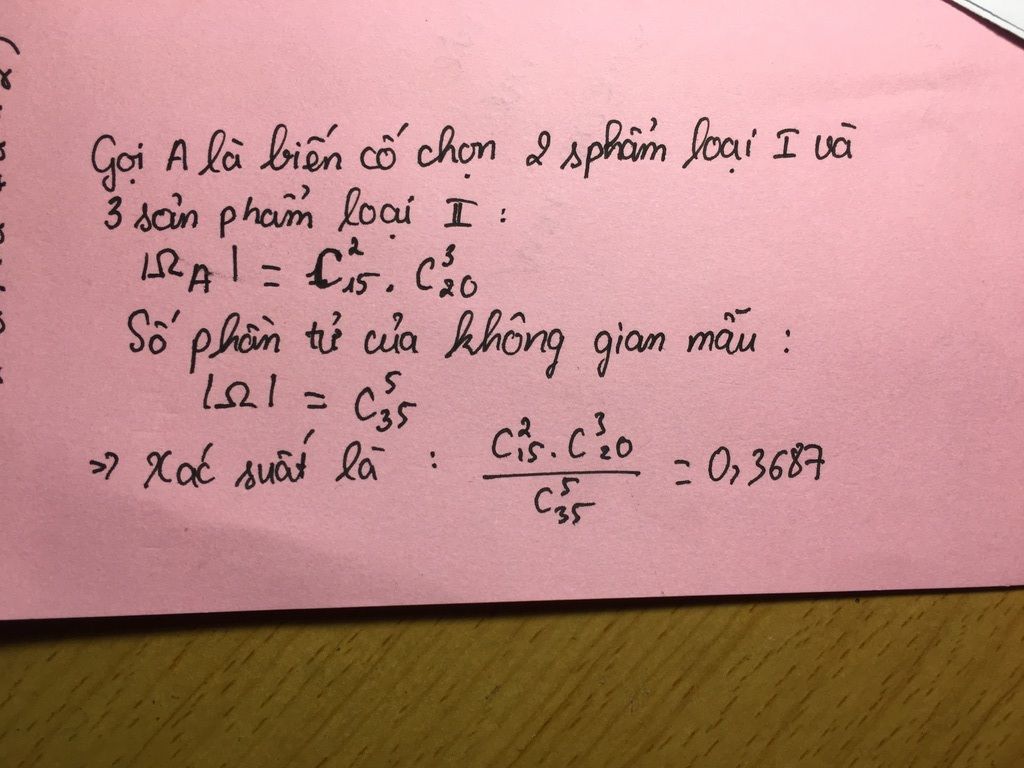 Gọi A là biến cố chọn 2 sphẩm loại I và
3 sản phẩm loại II :
|Ω_A| = C²₁₅ . C³₂₀
Số phần tử của không gian mẫu :
|Ω| = C⁵₃₅
=> Xác suất là : (C²₁₅ . C³₂₀)/(C⁵₃₅) = 0,3687